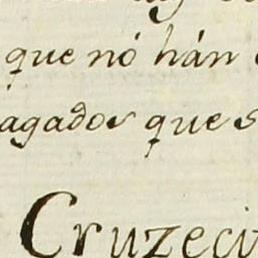 que nó hán
agador que s
Cruzeciv